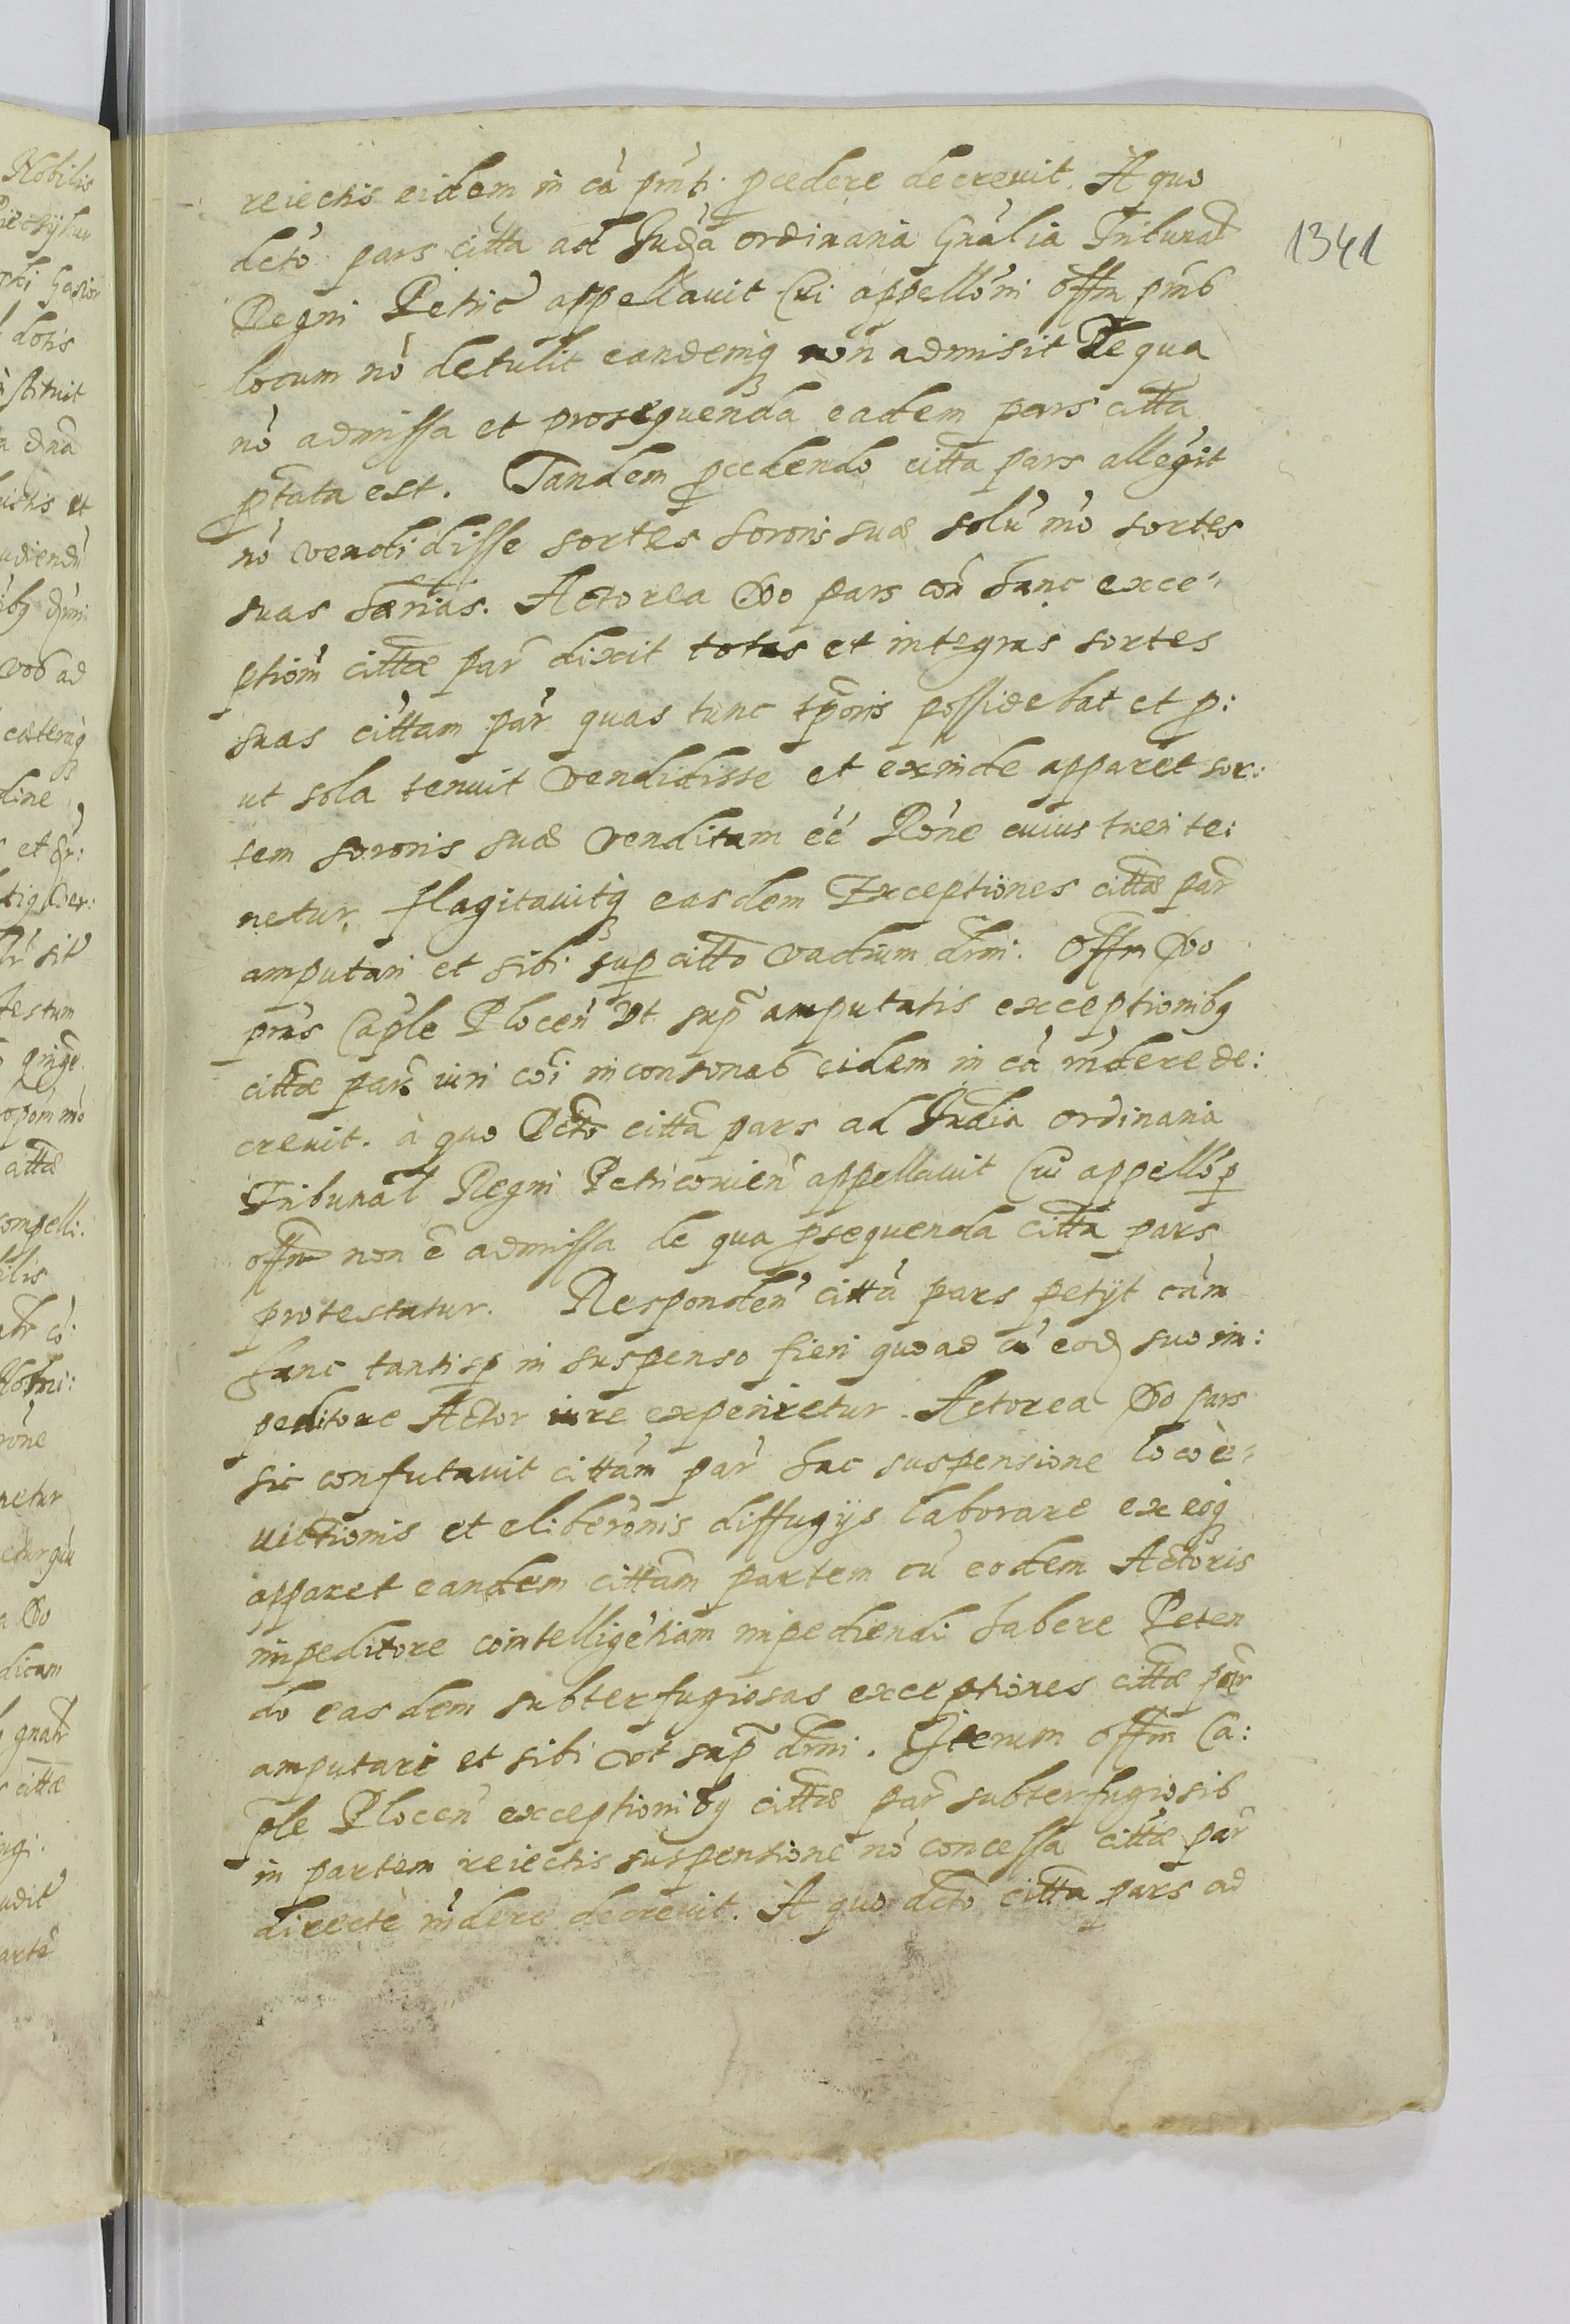 reiectis eidem in cã pnti pcedere decreuit. A quo
dcto pars citta ad Iudia ordinaria Gnalia Tribunal
Regni Petric appellauit Cui appelloni offm pns
locum nõ detulit eandemq non admisit De qua
nõ admissa et prosequenda eadem pars citta
ptata est. Tandem pcedendo citta pars allegit
nõ vendidisse sortes sororis suæ solũ mõ sortes
suas
Actorea Vo pars
hanc exce-
ptiom cittæ par dixit totas et integras sortes
suas cittam par quas tunc tpõris possidebat et p:
ut sola tenuit vendidisse et exinde apparet sor:
tem sororis suæ venditam éé Rone cuius tueri te:
netur, flagitauitq easdem Exceptiones cittæ par
amputari et sibi sup citto vadium dmi. Offm Vo
pns Caple Plocen Vt sup amputatis exceptionibq
cittæ par iuri coi inconsonab eidem in cã rndere de:
creuit. à quo Dcto citta pars ad Iudia ordinaria
Tribunal Regni Petricouien appellauit Cui appello p
offm non ẽ admissa de qua psequenda citta pars
protestatur. Responden citta pars petijt cam
hanc tantisp in suspenso fieri quoad cũ eod suo im:
peditore Actor iure experiretur. Actorea Vo pars
sic confutauit cittam par hac suspensione loco è-
uictionis et eliberonis diffugijs laborare ex eoq
apparet eandem cittam partem cũ eodem Actoris
impeditore cointelligẽtiam impediendi habere Peten
do easdem subterfugiosas exceptiones cittæ par
amputari et sibi vt sup dmi. Iterum offm Ca:
ple Plocen exceptionibq cittæ par subterfugiosib
in partem reiectis suspensione nõ concessa cittæ par
directè rndere decreuit. A quo dcto citta pars ad
1341